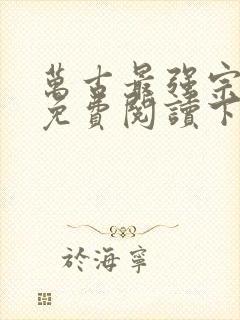 萬古最強宗
免費閱讀下
於海寧